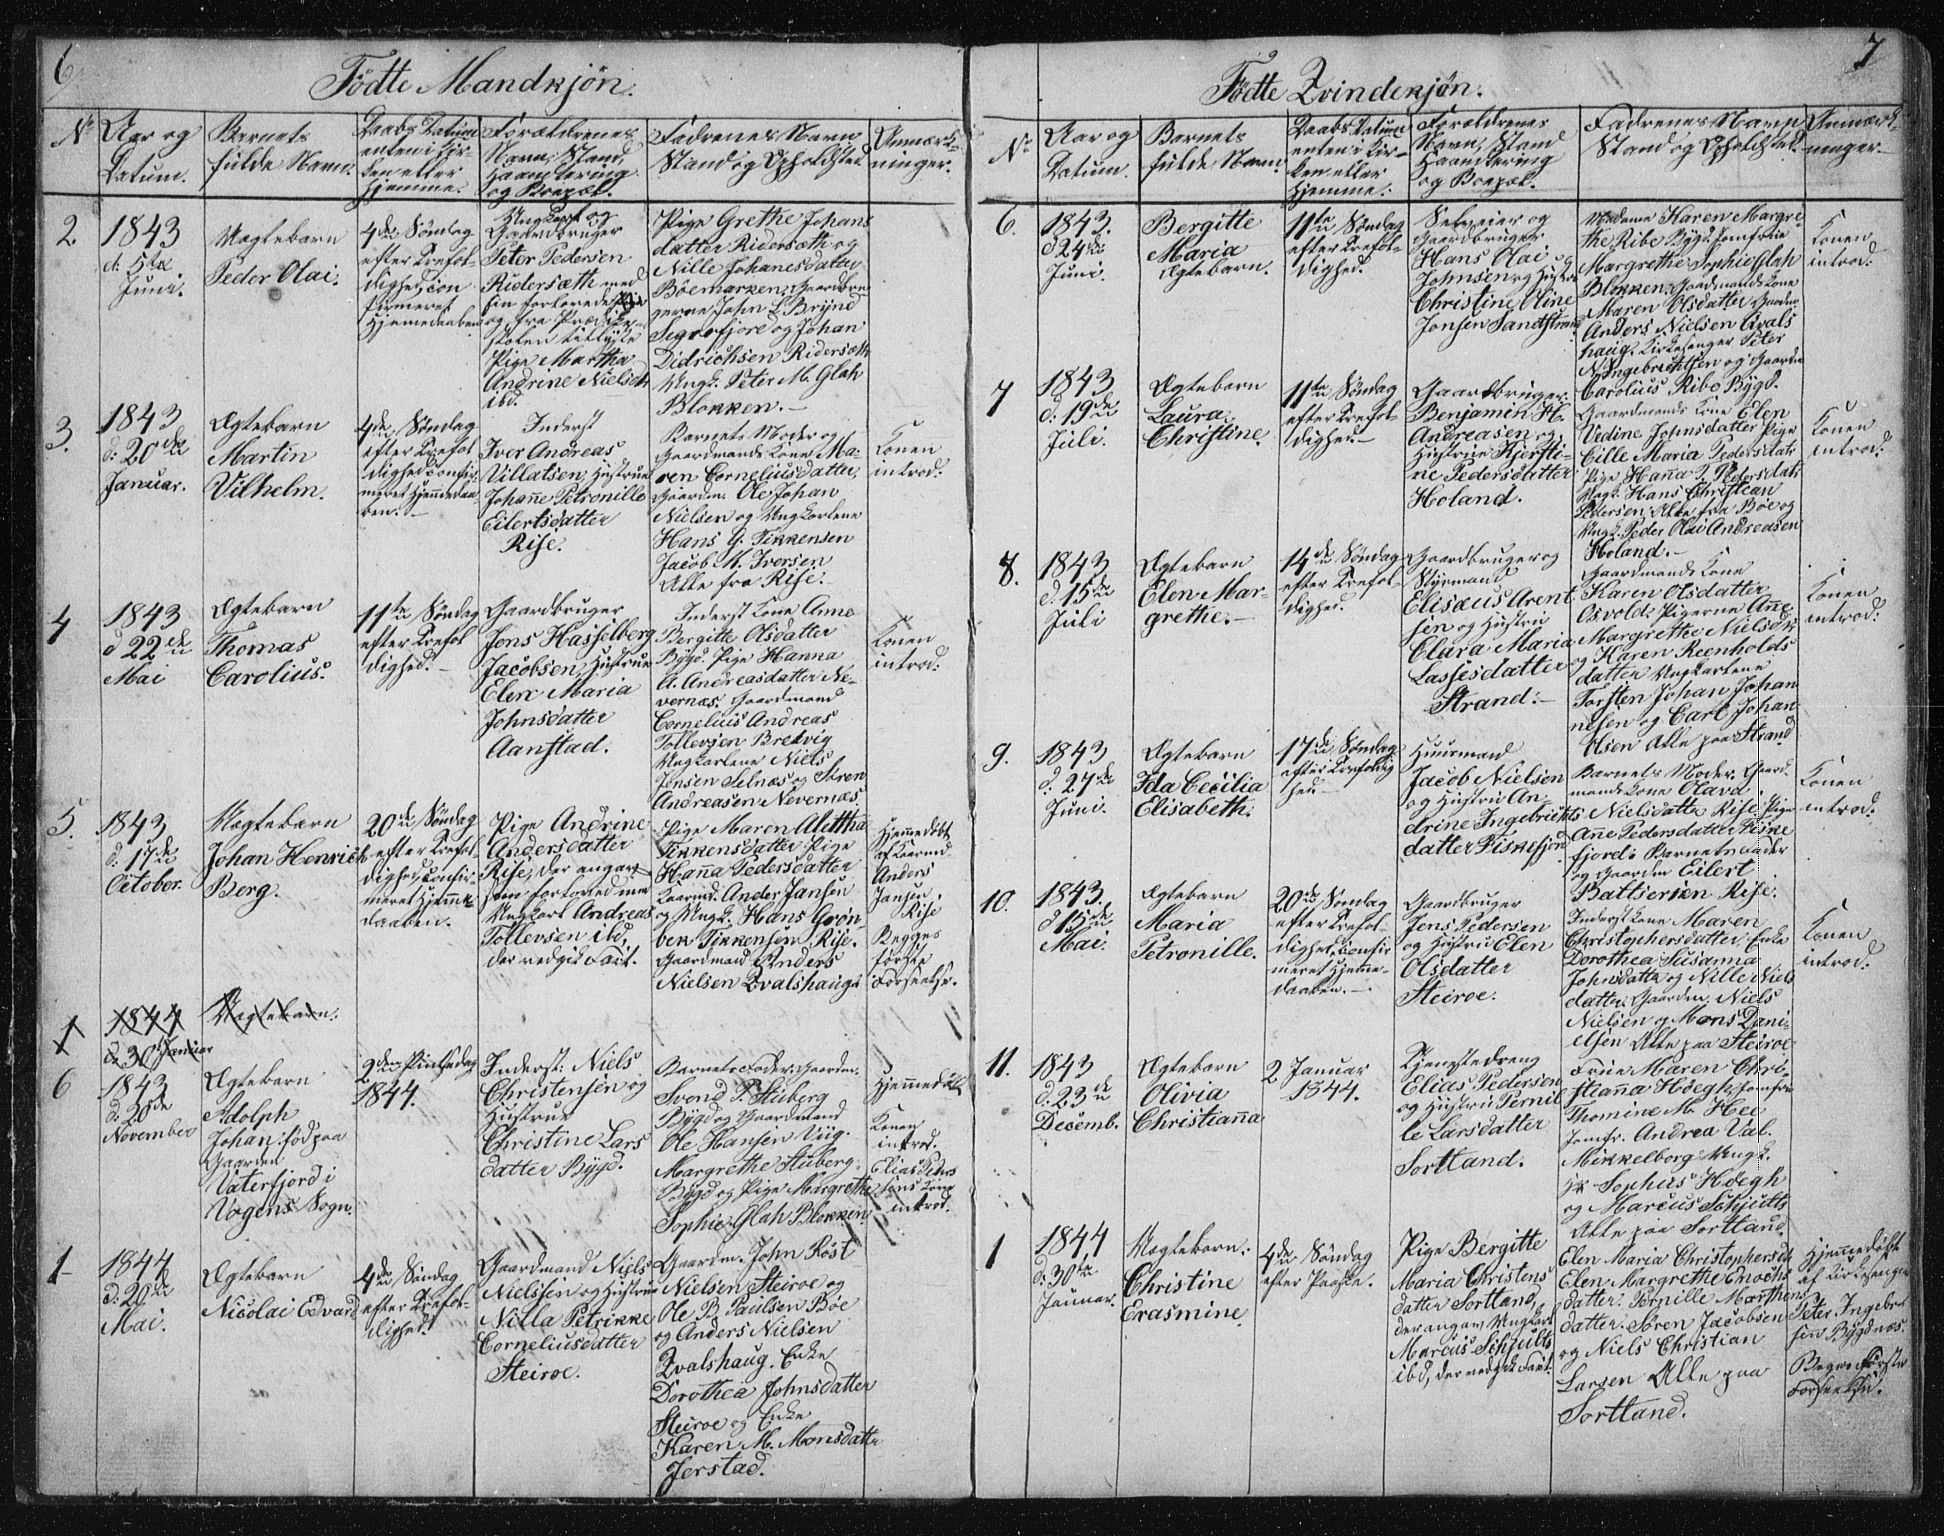 6
Fødte Mandkjøn.
No
Aar og
Datum.
Barnets
fulde Navn.
Daabs Datum
enten i Kir-
ken eller
Hjemme.
Forældrenes
Navn, Stand,
Haandtering
og Boepæl.
Fadrenes Navn
Stand og Opholdsted
Anmærk-
ninger.
2
1843
d. 5te
Juni.
Uægtebarn
Peder Olai.
4de Søndag
efter Trefol-
dighed, con
firmeret
Hjemedaaben
Ungkarl og
Gaardbruger
Peter Pedersen
Ridersæth med
sin forlovede
og fra Prædike-
stolen tillyste
Pige Martha
Andrine Nielsdtr
ibd.
Pige Grethe Johans
datter Ridersæth og
Nille Johanesdatter
Böemarken, Gaardbru
gerne John L. Brynd
Sigrofjore og Johan
Didrichsen Ridersæth
Ungk. Peter M. Glah
Blokken.-
3.
1843
d: 20de
Januar.
Ægtebarn
Martin
Vilhelm.
4de Søndag
efter Trefol
dighed, confir-
meret Hjemedaa-
ben.-
Inderst
Iver Andreas
Villatsen, Hustrue
Johañe Petronille
Eilertsdatter
Rise.
Barnets Moder og
Gaardmands Kone Ma-
ren Corneliusdatter,
Gaardm. Ole Johan
Nielsen og Ungkarlene
Hans G. Tikkensen
Jacob M. Iversen
Alle fra Rise.-
Konen
introd:
4
1843
d 22de
Mai
Ægtebarn
Thomas
Carolius.
11te Søndag
efter Trefol
dighed.-
Gaardbruger
Jens Hasselberg
Jacobsen, Hustrue
Elen Maria
Johnsdatter
Aanstad.
Inderst Kone Anne
Bergitte Olsdatter
Bygd. Pige Hanna
A. Andreasdatter Ne-
vernæs. Gaardmand
Cornelius Andreas
Tollevsen Bredvig
Ungkarlene Niels
Jensen Selnæs og Søren
Andreasen Nevernæs
Konen
introd:
5.
1843
d: 17de
October.
Uægtebarn
Johan Henrich
Berg.
20de Søndag
efter Trefol-
dighed, confir-
meret Hjemme
daaben.
Pige Andrine
Andersdatter
Rise, der angav
som forlovede med
Ungkarl Andreas
Tollevsen ibd,
der vedgik Fait.
Pige Maren Alettha
Tikkensdatter. Pige
Hanna Pedersdatter
Kaarmd. Ander Jansen
og Ungk. Hans Grøn-
bek Tikkensen Rise.
Gaardmand Anders
Nielsen Qvalshaug
Hjemmedöbt
af Kaarmd
Anders
Jansen
Rise
Begges
første
Forseelse.
1
1844
d. 30te Januar
Uægtebarn:
6
1843
d. 20de
November
Ægtebarn
Adolph
Johan. fød paa
Gaarden
Vaterfjord i
Vogens Sogn.
2den Pintsedag
1844.
Inderst: Niels
Christensen og
Hustrue
Christine Lars
datter Bygd.
Barnets Fader. Gaardm.
Svend P. Stuberg
Bygd og Gaardmand
Ole Hansen Viig.
Margrethe Stuberg
Bygd og Pige Margrethe
Sophie Glah Blokken
Hjemmedöbt
Konen
introd.
Elias Peders
sens Kone
introd.
1
1844
d. 20de
Mai.
Ægtebarn
Nicolai Edvard
4de Søndag
efter Trefol-
dighed.
Gaardmand Niels
Nielssen og Hustrue
Nilla Petrikke
Corneliusdatter
Steiroe.
Gaardm. John Röst
Nielsen Steiroe og
Ole B. Paulsen Böe
og Anders Nielsen
Qvalshaug. Enke
Dorothea Johnsdatter
Steiroe og Enke
Karen M. Monsdatter
Jerstad.
7
Fødte Qvindekjøn.
No
Aar og
Datum.
Barnets
fulde Navn.
Daabs Datum
enten i Kir-
ken eller
Hjemme.
Forældrenes
Navn, Stand
Haandtering
og Boepæl.
Fadrenes Navn
Stand og Opholdsted.
Anmærk-
ninger.
6.
1843.
d 24de
Juni.
Bergitte
Maria
Ægtebarn.
11te Søndag
efter Trefol-
dighed.
Selveier og
Gaardbruger
Hans Olai
Johnsen og Hustrue
Christine Oline
Jonsen Sandstrand
Madame Karen Margre-
the Ribe Bygd. Jomfrue
Margrethe Sophie Glah
Blokken, Gaardmands Kone
Maren Olsdatter Gaardm.
Anders Nielsen Qvals
haug. Kirkesanger Peter
N. Ingebrichtsen og Gaardm
Carolius Ribe Bygd.
Konen
introd:
7
1843
d. 19de
Juli.
Ægtebarn
Laura
Christine
11te Søndag
efter Trefol
dighed.-
Gaardbruger
Benjamin H.
Andreasen og
Hustrue Kjersti-
ne Pedersdatter
Holand.
Gaardmands Kone Elen
Vedine Johnsdatter Pige
Cille Maria Pedersdatr
Pige Haña J. Pedersdatr
Ungk. Hans Christean
Pedersen. Alle fra Böe og
Ungk. Peder Olai Andreasen
Holand.-
Konen
introd:
8.
1843
d. 15de
Juli
Ægtebarn
Elen Mar-
grethe.-
14de Søndag
efter Trefol-
dighed.
Gaardbruger og
Styrmand
Elisæus Arent
sen og Hustrue
Clara Maria
Lassesdatter
Strand:-
Gaardmands Kone
Karen Olsdatter
Osvold. Pigerne Añe
Margrethe Nielsdtr
og Karen Reenholds
datter Ungkarlene
Torsten Johan Johan
nesen og Carl Johan
Olsen Alle paa Strand
Konen
introd:
9.
1843
d. 27de
Juni.
Ægtebarn
Ida Cecilia
Elisabeth.
17de Søndag
efter Trefoldig
hed.
Huusmand
Jacob Nielsen
og Hustru An-
drine Ingebrichts
datter Fiskefjord
Barnets Moder. Gaard-
mands Kone Olava
Nielsdatter Rise. Pige
Ane Pedersdatter Fiske
fjord. Barnets Fader
og Gaardm Eilert
Battsersen Rise.
Konen
introd:
10.
1843.
d 15de
Mai.
Ægtebarn
Maria
Petronille.
20de Søndag
efter Trefol-
dighed, confir
meret Hjemme-
daaben.-
Gaardbruger
Jens Pedersen
og Hustru Elen
Olsdatter
Steiroe.
Inderst Kone Maren
Christophersdatter, Enke
Dorothea Susanna
Johnsdatter og Nille Niels
datter. Gaardm. Niels
Nielsen og Mons Dani-
elsen Alle paa Steiroe
Konen
introd:
11.
1843
d. 23de
Decemb.
Ægtebarn
Olivia
Christianna
2 Januar
1844.
Tjenestedreng
Elias Pedersen
og Hustru Pernil
le Larsdatter
Sortland.
Frue Maren Chri-
stianna Høegh, Jomfrue
Thomine M. Hee
Jomfr. Andrea Val.
Mikkelborg Ungk.
Hr Sophus Høegh
og Marcus Schjults
Alle paa Sortland
1
1844
d: 30te
Januar.
Uægtebarn:
Christine
Erasmine
4de Søndag
efter Paaske.
Pige Bergitte
Maria Christens
datter Sortland,
der angav Ungkarl
Marcus Schjults
ibd, der vedgik Fait.
Elen Maria Christophersdt
Elen Margrethe Enochs
datter. Pernille Marthens
datter. Søren Jacobsen
og Niels Christian
Larsen Alle paa
Sortland.
Hjemmedöbt
af Kirkesanger
Peter Ingebri
sen Bygdnæs.
Begges Første
Forseelse.